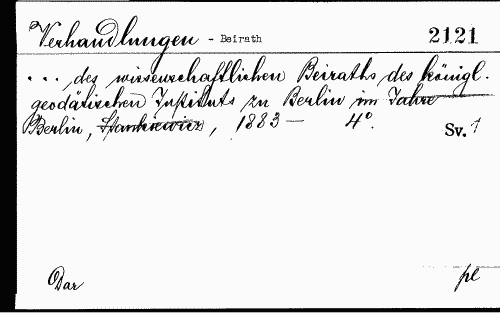 Verhandlungen - Beirath 2121
... des wissenschaftlichen Beiraths des königl.
geodätischen Instituts zu Berlin im Jahre
Berlin, Stankiewicz, 1883 — 4°. Sv. 1
Dar pl